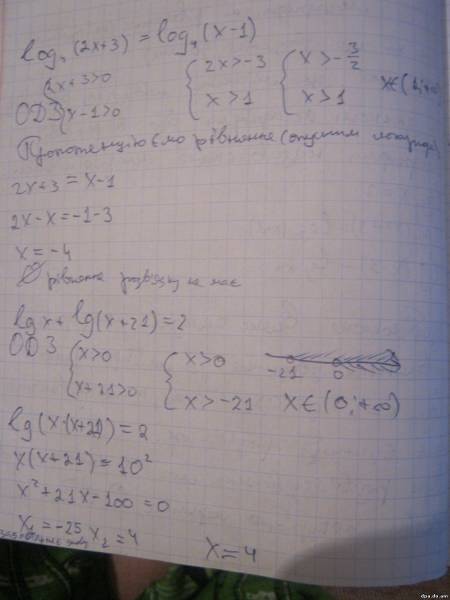 log₄(2x+3) = log₄(x-1)
ОДЗ { 2x+3>0 x-1>0 { 2x>-3 x>1 { x>-3/2 x>1 x∈(1;+∞)
Пропотенціюємо рівняння (опустим логарифм)
2x+3=x-1
2x-x=-1-3
x=-4
∅ рівняння розв'язку не має
lg x + lg(x+21)=2
ОДЗ { x>0 x+21>0 { x>0 x>-21 -21 0 x∈(0;+∞)
lg(x·(x+21))=2
x(x+21)=10²
x²+21x-100=0
x₁=-25 x₂=4
x=4
dpa.do.am